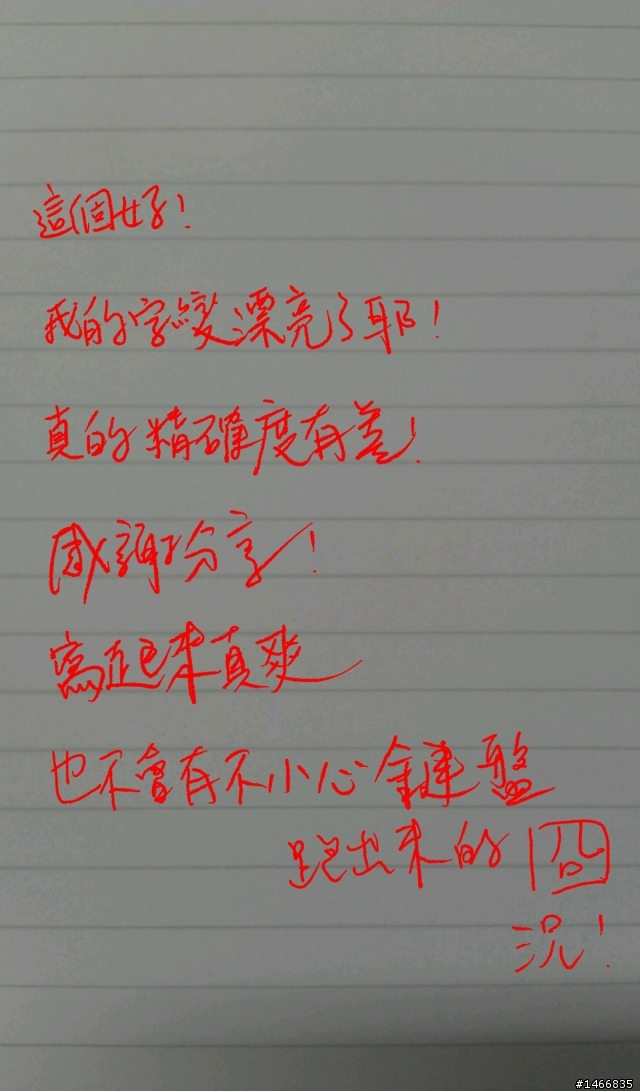 這個好!
我的字變漂亮了耶!
真的精確度有差!
感謝分享!
寫起來真爽
也不會有不小心鍵盤
跑出來的囧
況!
#1466835